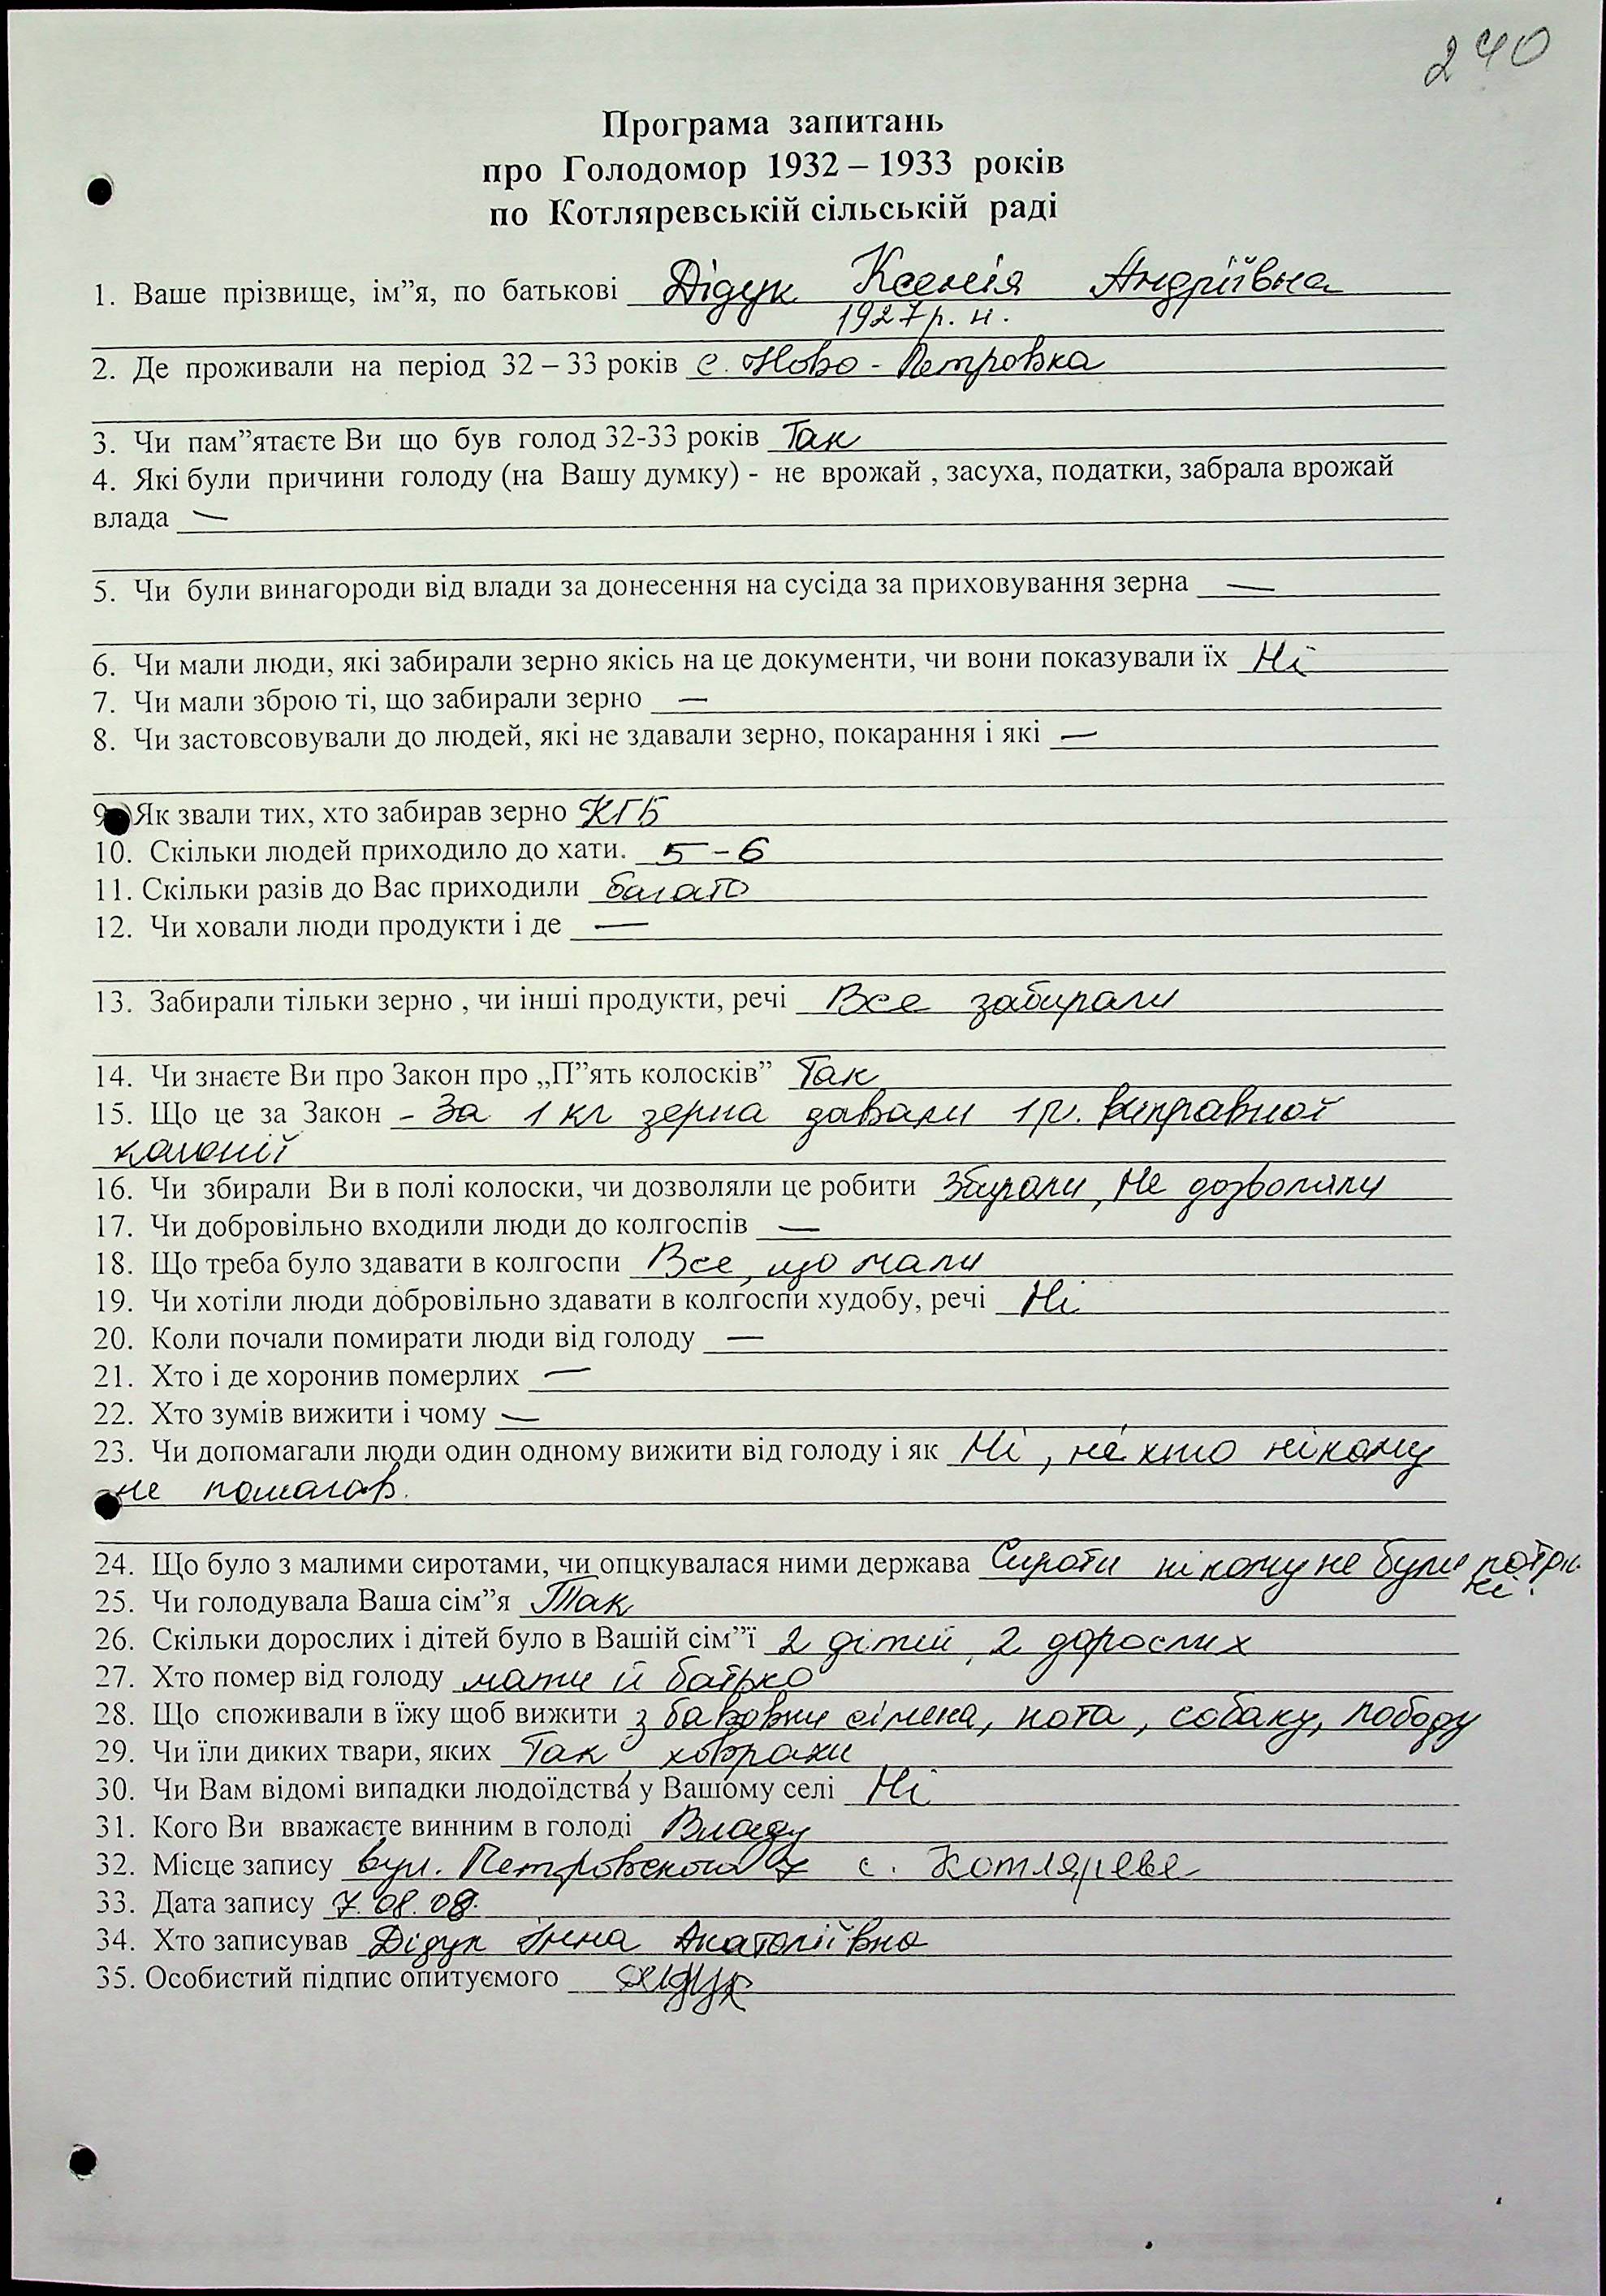 240
Програма запитань
про Голодомор 1932 – 1933 років
по Котляревській сільській раді
1. Ваше прізвище, ім”я, по батькові Дідук Ксенія Андріївна
1927 р. н.
2. Де проживали на період 32 – 33 років с. Ново - Петровка
3. Чи пам”ятаєте Ви що був голод 32-33 років Так
4. Які були причини голоду (на Вашу думку) - не врожай , засуха, податки, забрала врожай
влада —
5. Чи були винагороди від влади за донесення на сусіда за приховування зерна —
6. Чи мали люди, які забирали зерно якісь на це документи, чи вони показували їх Ні
7. Чи мали зброю ті, що забирали зерно —
8. Чи застовсовували до людей, які не здавали зерно, покарання і які —
9. Як звали тих, хто забирав зерно КГБ
10. Скільки людей приходило до хати. 5 – 6
11. Скільки разів до Вас приходили багато
12. Чи ховали люди продукти і де —
13. Забирали тільки зерно , чи інші продукти, речі Все забирали
14. Чи знаєте Ви про Закон про „П”ять колосків” Так
15. Що це за Закон - За 1 кг зерна давали 1 р. виправної
колонії
16. Чи збирали Ви в полі колоски, чи дозволяли це робити Збирали, Не дозволяли
17. Чи добровільно входили люди до колгоспів —
18. Що треба було здавати в колгоспи Все, що мали
19. Чи хотіли люди добровільно здавати в колгоспи худобу, речі Ні
20. Коли почали помирати люди від голоду —
21. Хто і де хоронив померлих —
22. Хто зумів вижити і чому —
23. Чи допомагали люди один одному вижити від голоду і як Ні, ніхто нікому
не помагав.
24. Що було з малими сиротами, чи опцкувалася ними держава Сироти нікому не були потріб-
ні.
25. Чи голодувала Ваша сім”я Так
26. Скільки дорослих і дітей було в Вашій сім”ї 2 дітей, 2 дорослих
27. Хто помер від голоду мати й батько
28. Що споживали в їжу щоб вижити з бавовни сімена, кота, собаку, лободу
29. Чи їли диких твари, яких Так, ховрахи
30. Чи Вам відомі випадки людоїдства у Вашому селі Ні
31. Кого Ви вважаєте винним в голоді Владу
32. Місце запису вул. Петровского 7 с. Котлярева
33. Дата запису 7. 08. 08.
34. Хто записував Дідук Інна Анатоліївна
35. Особистий підпис опитуємого Дидук